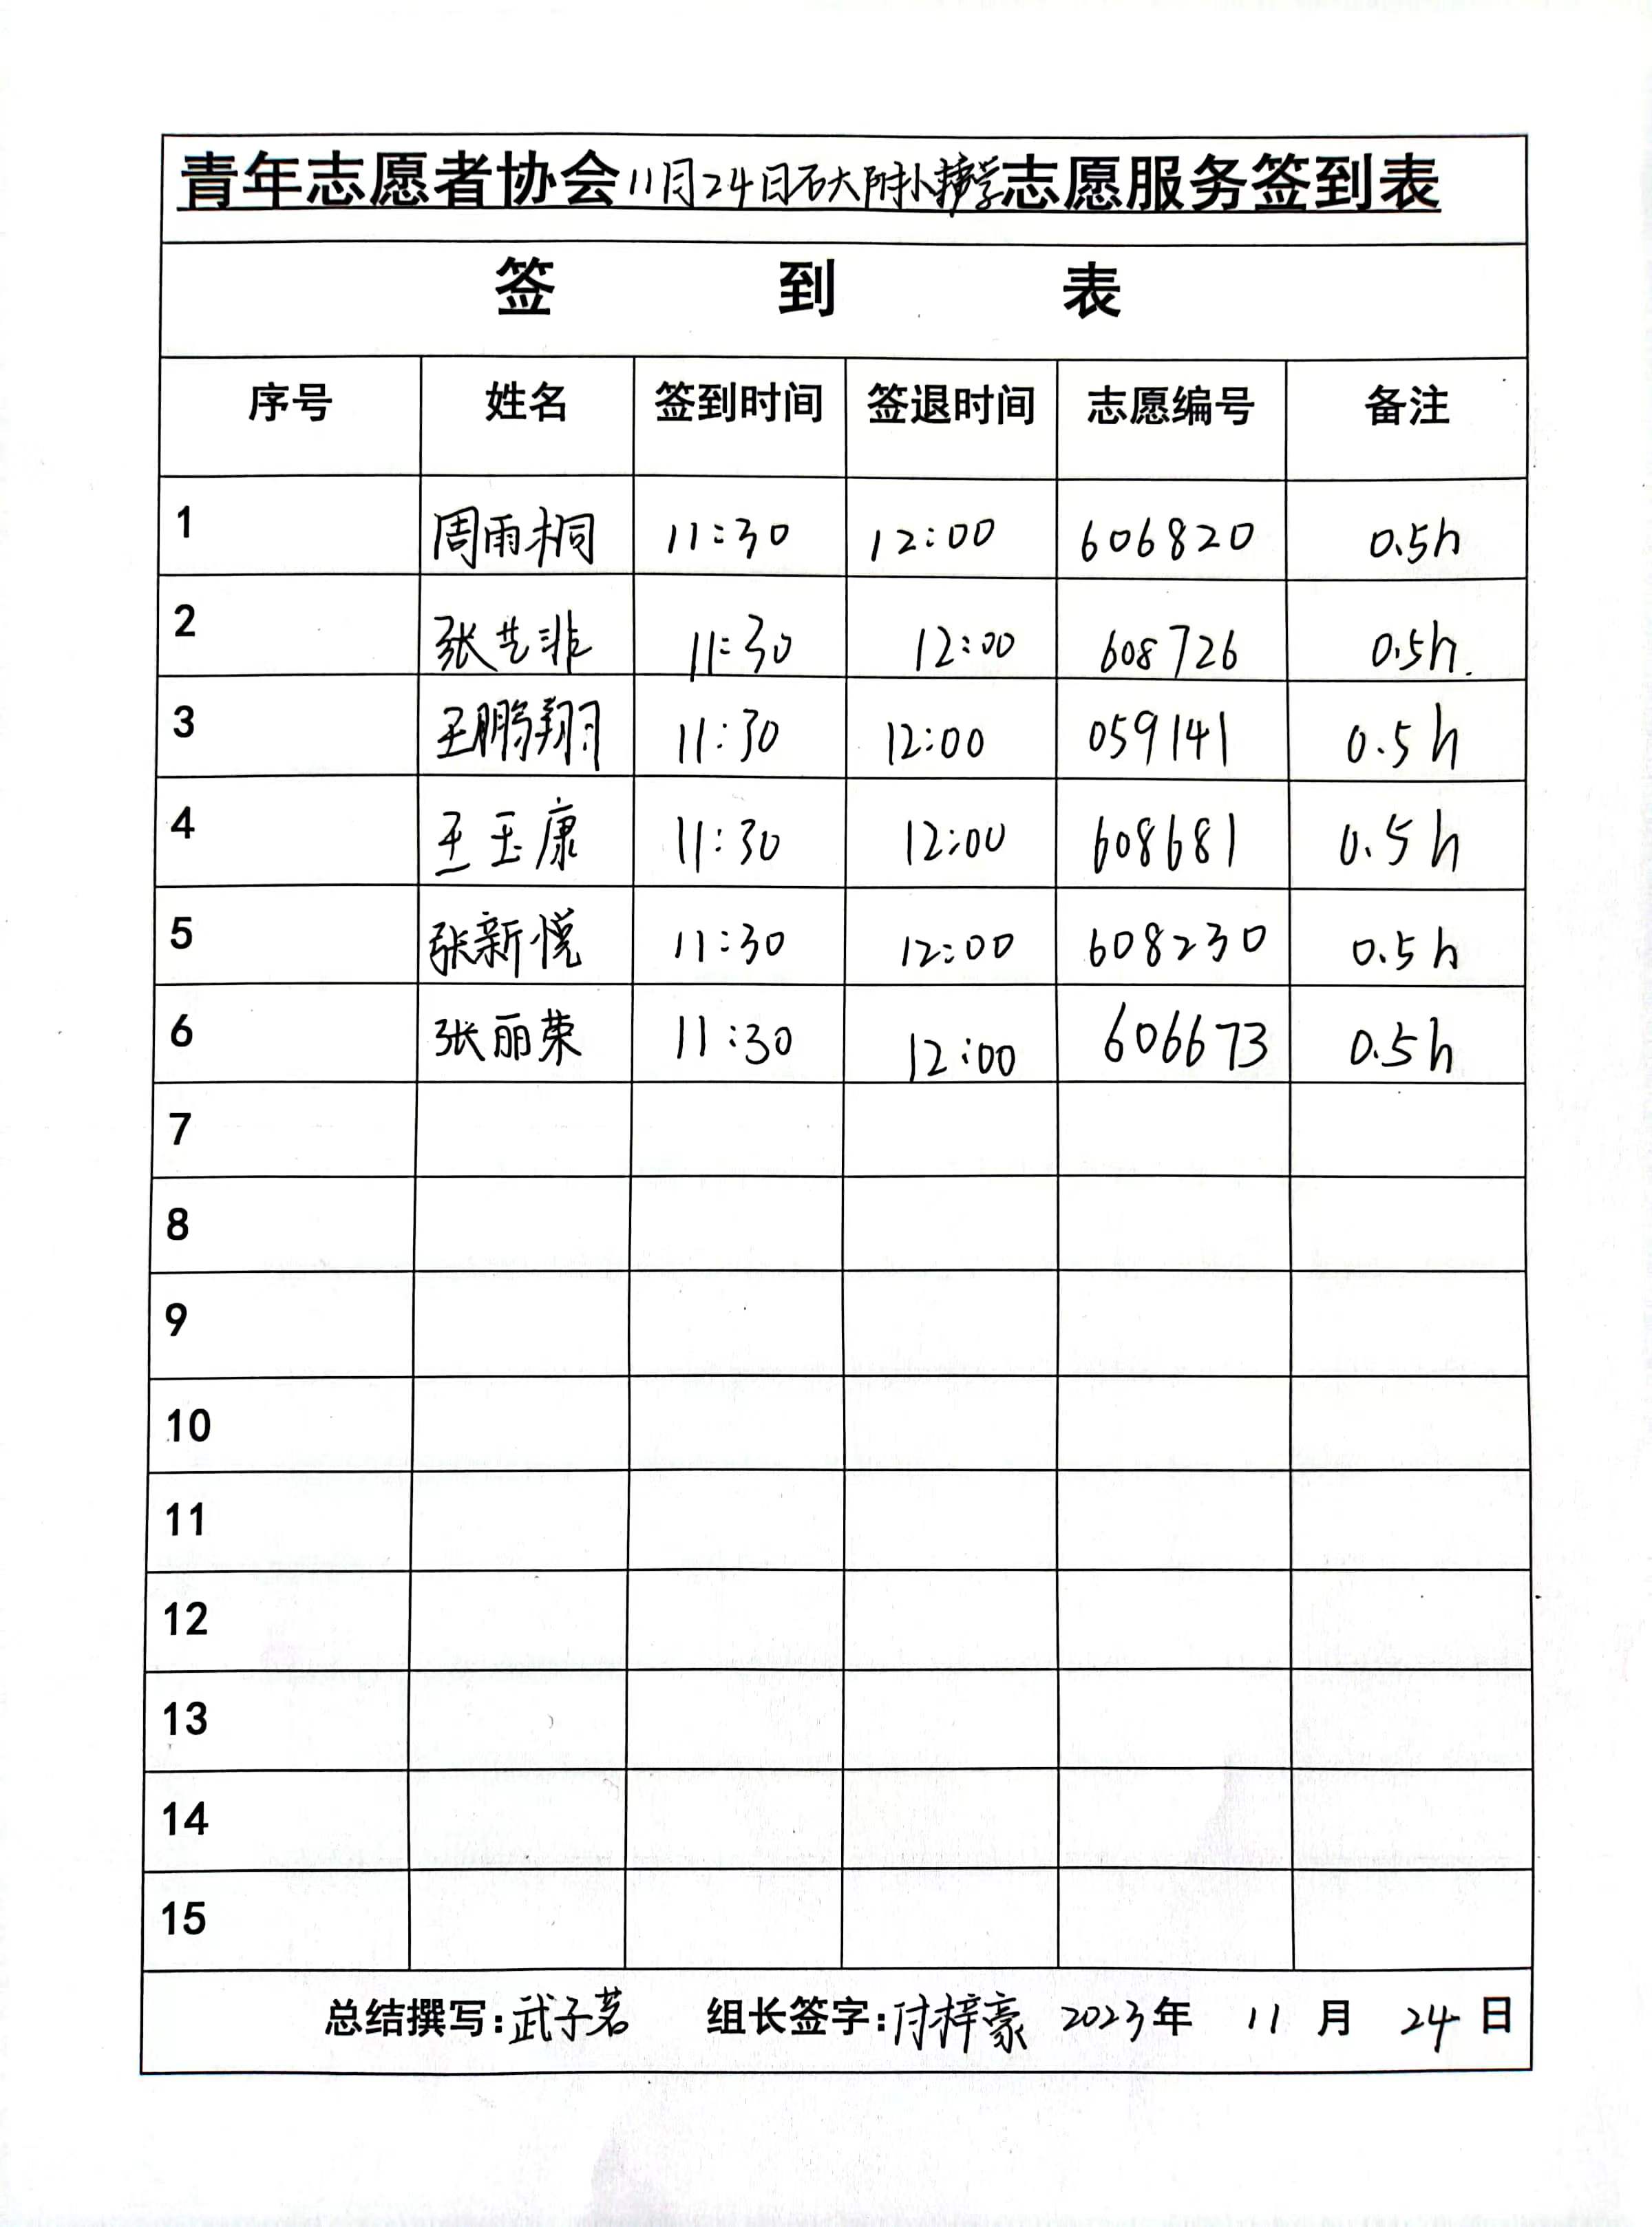 青年志愿者协会11月24日石大附小护学志愿服务签到表
签 到 表
序号 姓名 签到时间 签退时间 志愿编号 备注
1 周雨桐 11:30 12:00 606820 0.5h
2 张艺非 11:30 12:00 608726 0.5h.
3 王鹏翔 11:30 12:00 059141 0.5h
4 王玉康 11:30 12:00 608681 0.5h
5 张新悦 11:30 12:00 608230 0.5h
6 张丽荣 11:30 12:00 606673 0.5h
7
8
9
10
11
12
13
14
15
总结撰写:武子茗 组长签字:付梓豪 2023年 11 月 24 日